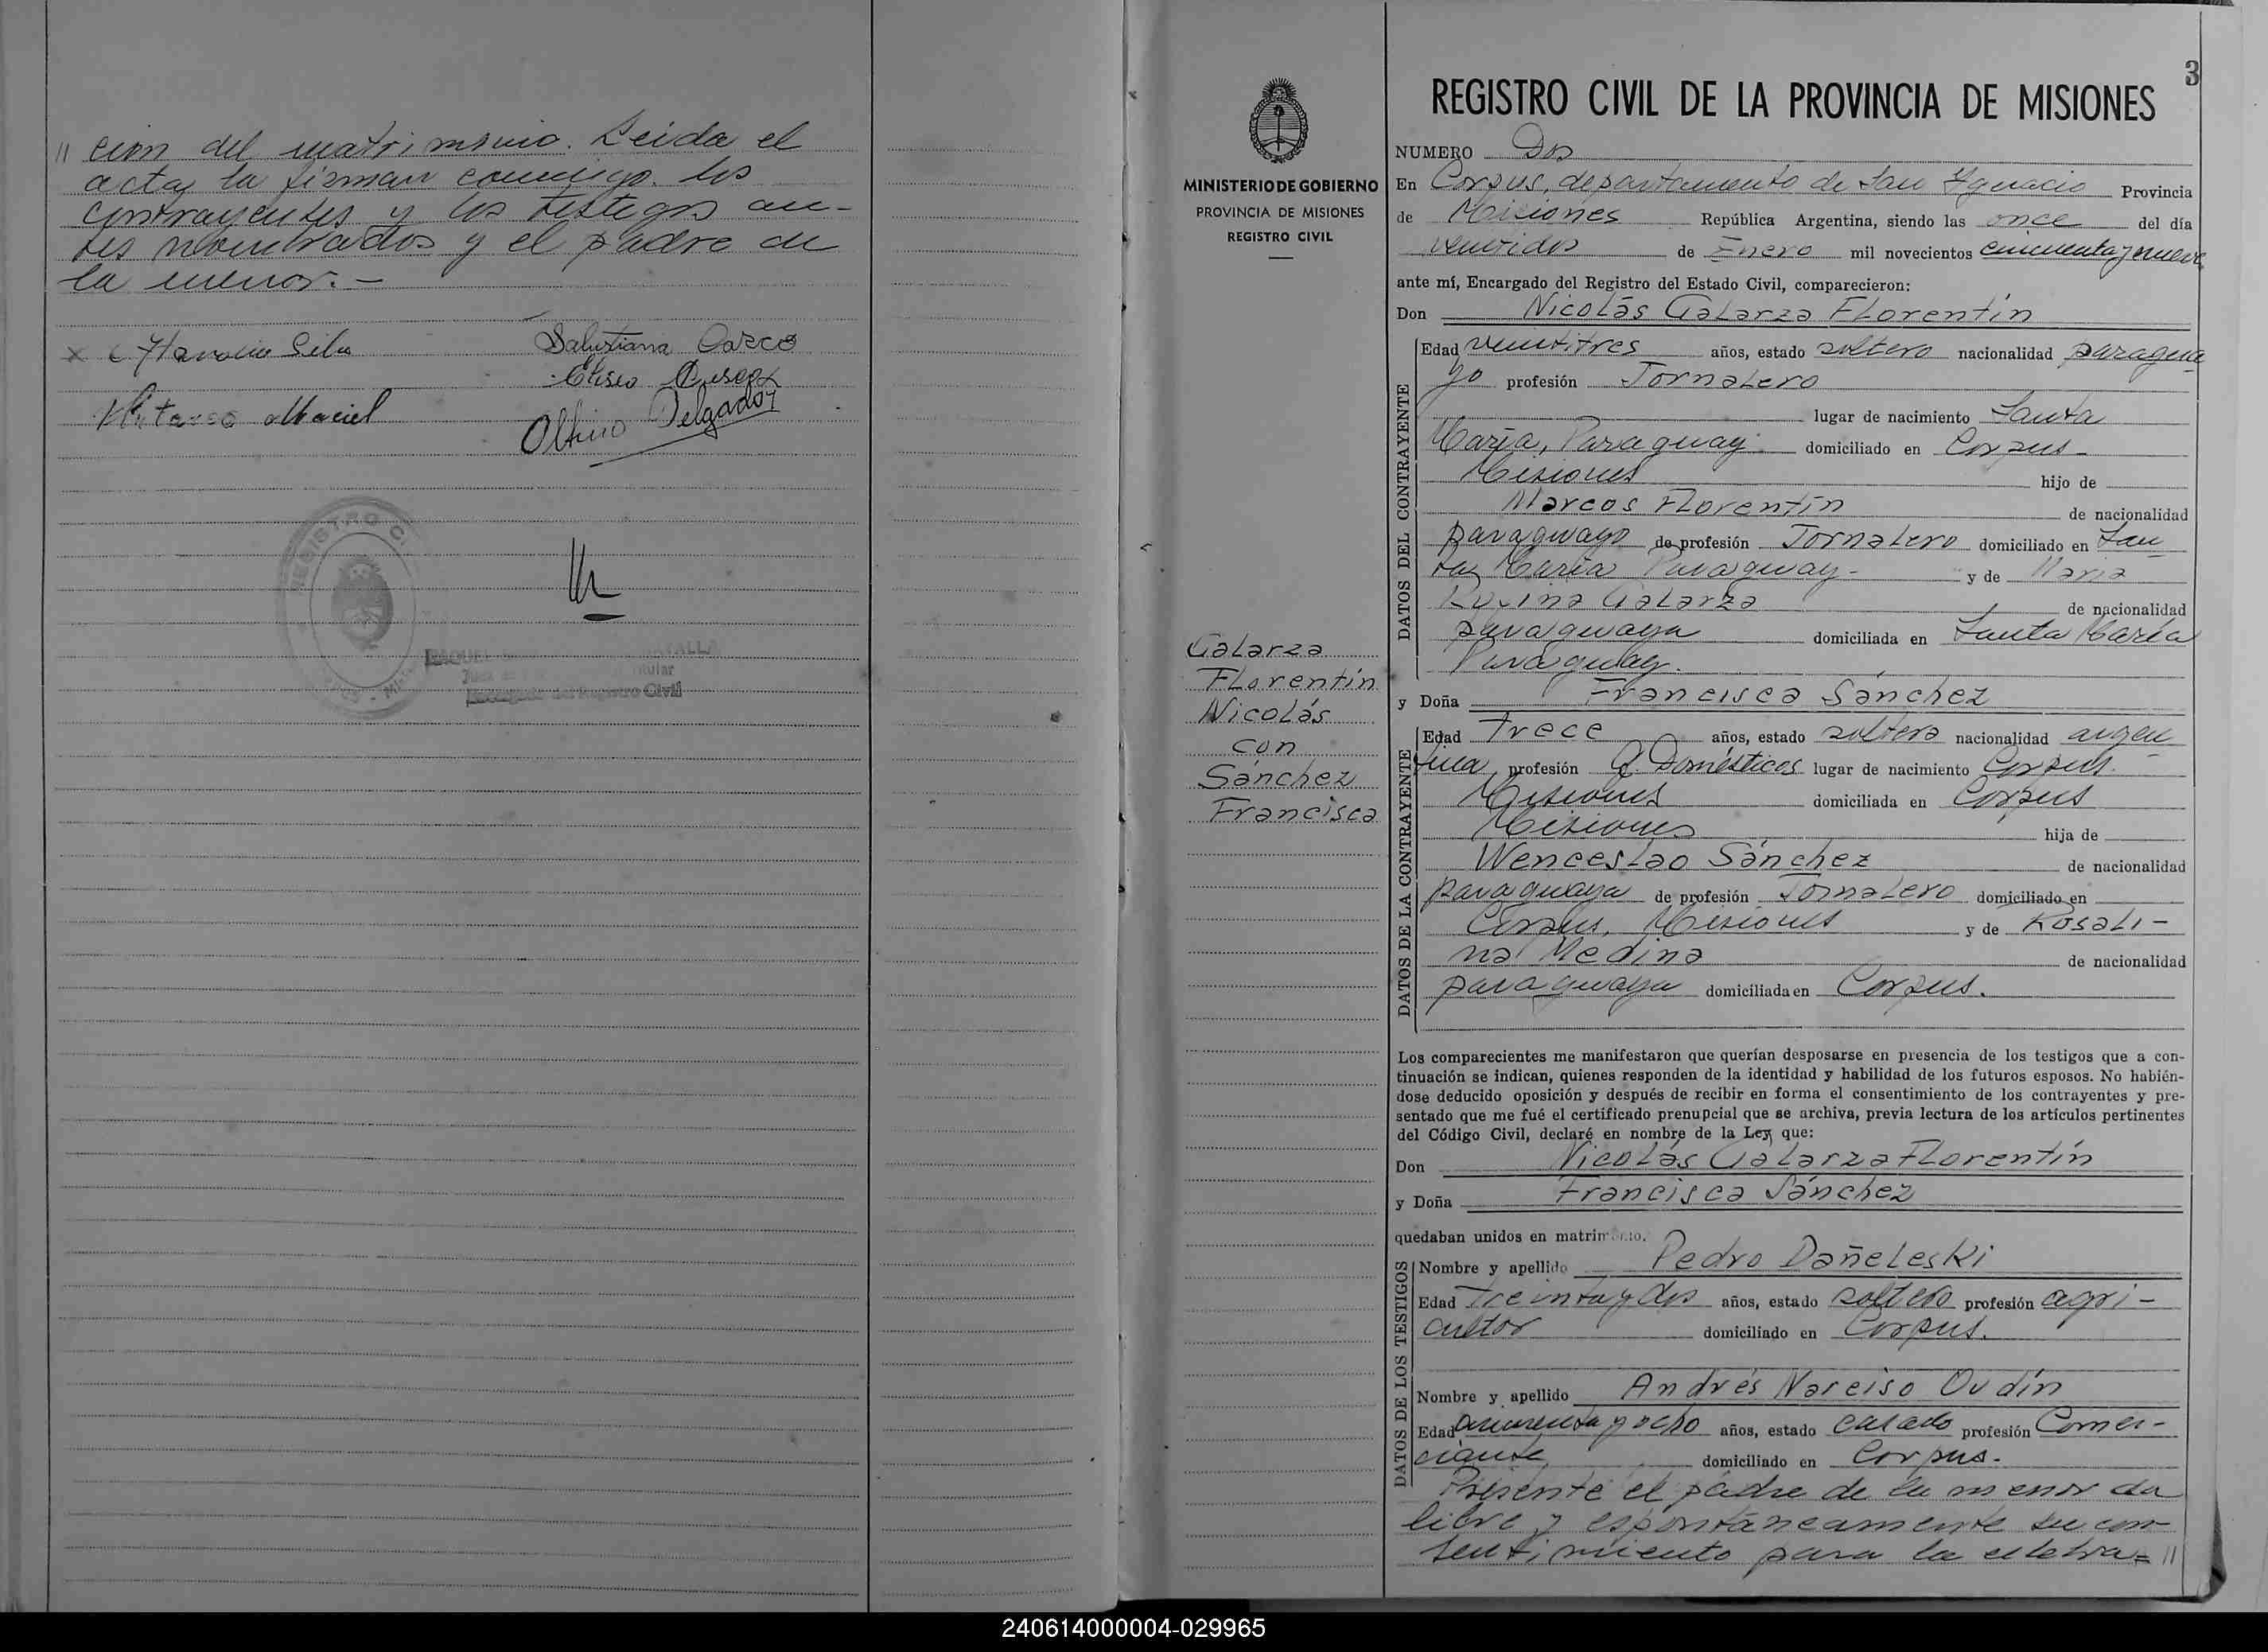 // cion del matrimonio. Leida el
acta, la firman conmigo los
contrayentes y los testigos an-
tes nombrados y el padre de
la menor.-
x
Salustiana
Eliseo
Maciel
Delgado
REGISTRO C.
del Registro Civil
3
MINISTERIO DE GOBIERNO
PROVINCIA DE MISIONES
REGISTRO CIVIL
Galarza
Florentín
Nicolás
con
Sánchez
Francisca
REGISTRO CIVIL DE LA PROVINCIA DE MISIONES
NUMERO Dos
En Corpus, departamento de San Ignacio Provincia
de Misiones República Argentina, siendo las once del día
veintidos de Enero mil novecientos cincuenta y nueve
ante mí, Encargado del Registro del Estado Civil, comparecieron:
Don Nicolás Galarza Florentín
DATOS DEL CONTRAYENTE
Edad veintitres años, estado soltero nacionalidad paragua
yo profesión Jornalero
lugar de nacimiento Santa
María, Paraguay. domiciliado en Corpus-
Misiones hijo de
Marcos Florentín de nacionalidad
paraguayo de profesión Jornalero domiciliado en San
ta María Paraguay- y de María
Galarza de nacionalidad
paraguaya domiciliada en Santa María
Paraguay.
y Doña Francisca Sánchez
DATOS DE LA CONTRAYENTE
Edad Trece años, estado soltera nacionalidad argen
tina, profesión Q. Domésticos lugar de nacimiento Corpus.
Misiones domiciliada en Corpus
Misiones hija de
Wenceslao Sánchez de nacionalidad
paraguaya de profesión Jornalero domiciliado en
Corpus, Misiones y de Rosali-
na Medina de nacionalidad
paraguaya domiciliada en Corpus.
Los comparecientes me manifestaron que querían desposarse en presencia de los testigos que a con-
tinuación se indican, quienes responden de la identidad y habilidad de los futuros esposos. No habién-
dose deducido oposición y después de recibir en forma el consentimiento de los contrayentes y pre-
sentado que me fué el certificado prenupcial que se archiva, previa lectura de los artículos pertinentes
del Código Civil, declaré en nombre de la Ley que:
Don Nicolás Galarza Florentín
y Doña Francisca Sánchez
quedaban unidos en matrimonio.
DATOS DE LOS TESTIGOS
Nombre y apellido Pedro Dañeleski
Edad Treinta y dos años, estado soltero profesión agri-
cultor domiciliado en Corpus.
Nombre y apellido Andrés Narciso Oudín
Edad cuarenta y ocho años, estado casado profesión Comer-
ciante domiciliado en Corpus.
Presente el padre de la menor da
libre y espontáneamente su con
sentimiento para la celebra= //
240614000004-029965